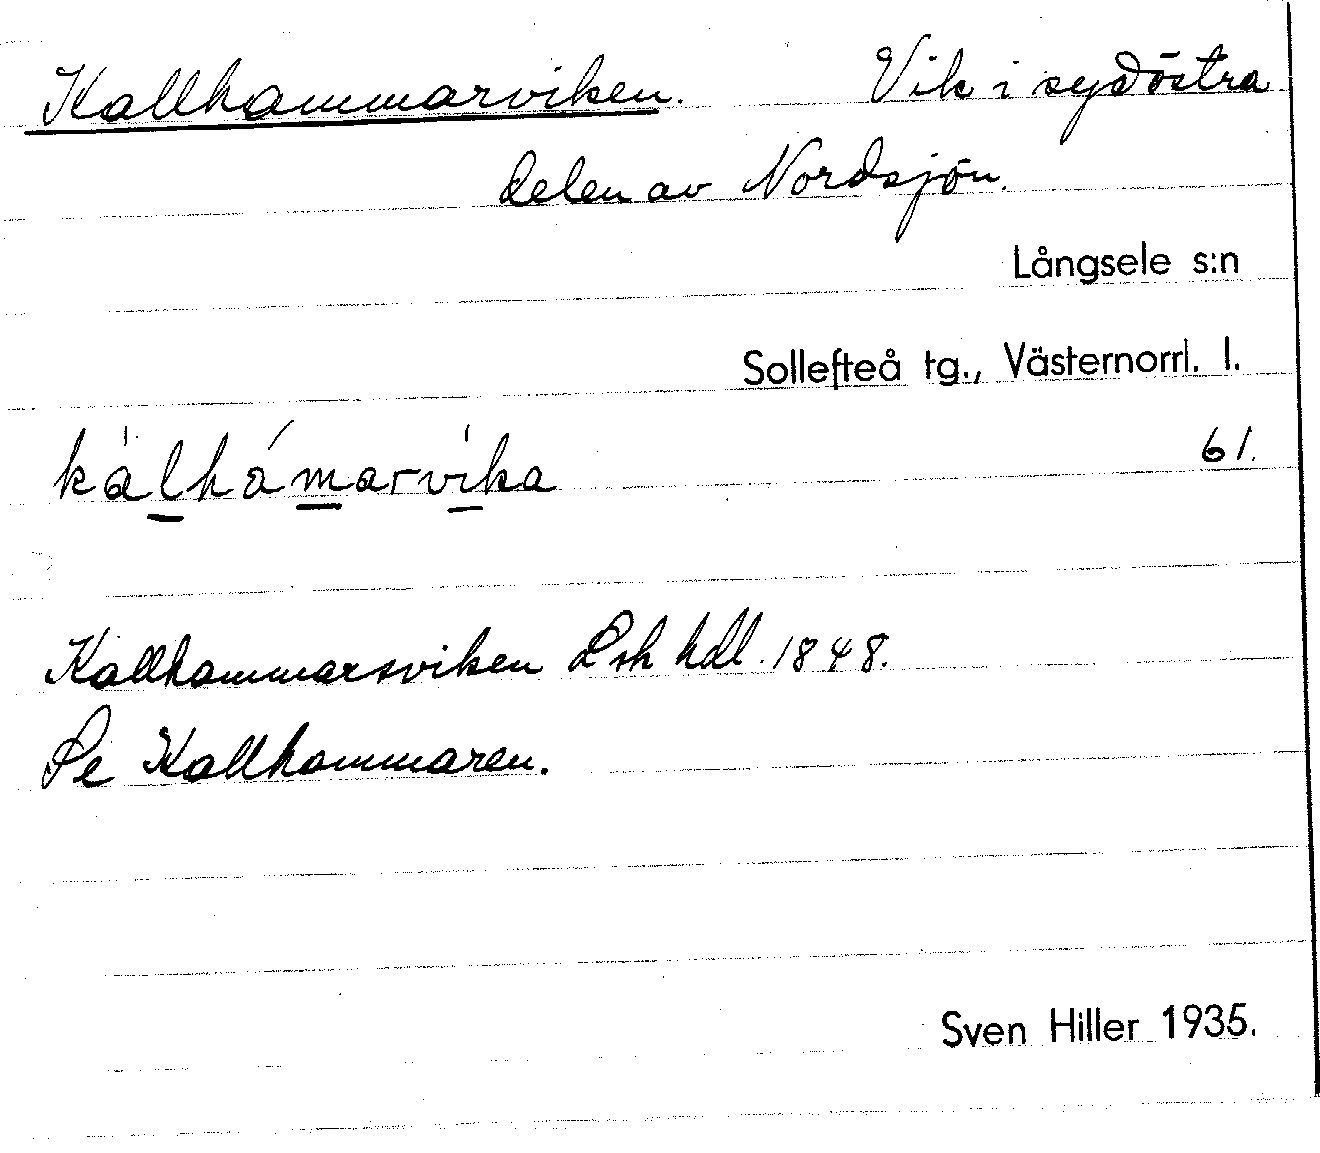 Kallhammarviken. Vik i sydöstra
delen av Nordsjön.
Långsele s:n
Sollefteå tg., Västernorrl. l.
61.
kàlhámarvìka
Kallhammarsviken Lsk hdl. 1848.
Se Kallhammaren.
Sven Hiller 1935.